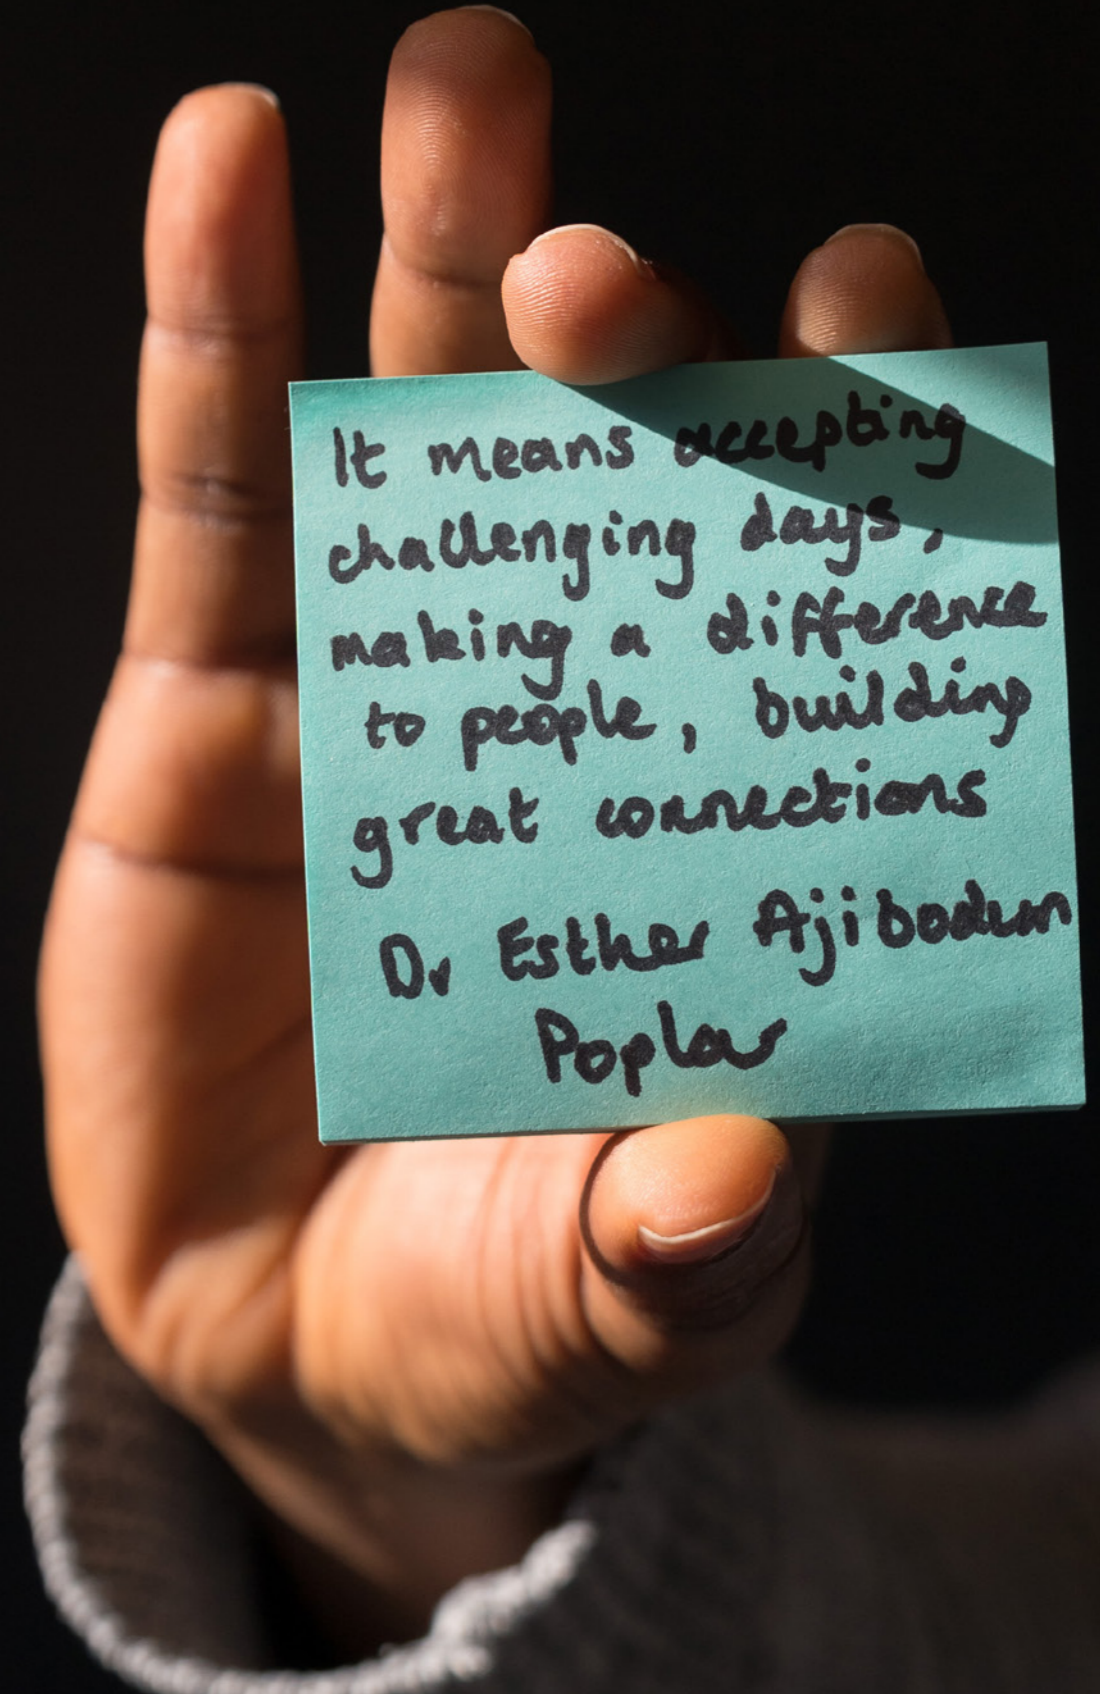 It means accepting
challenging days,
making a difference
to people, building
great connections
Dr Esther Ajibodun
Poplar